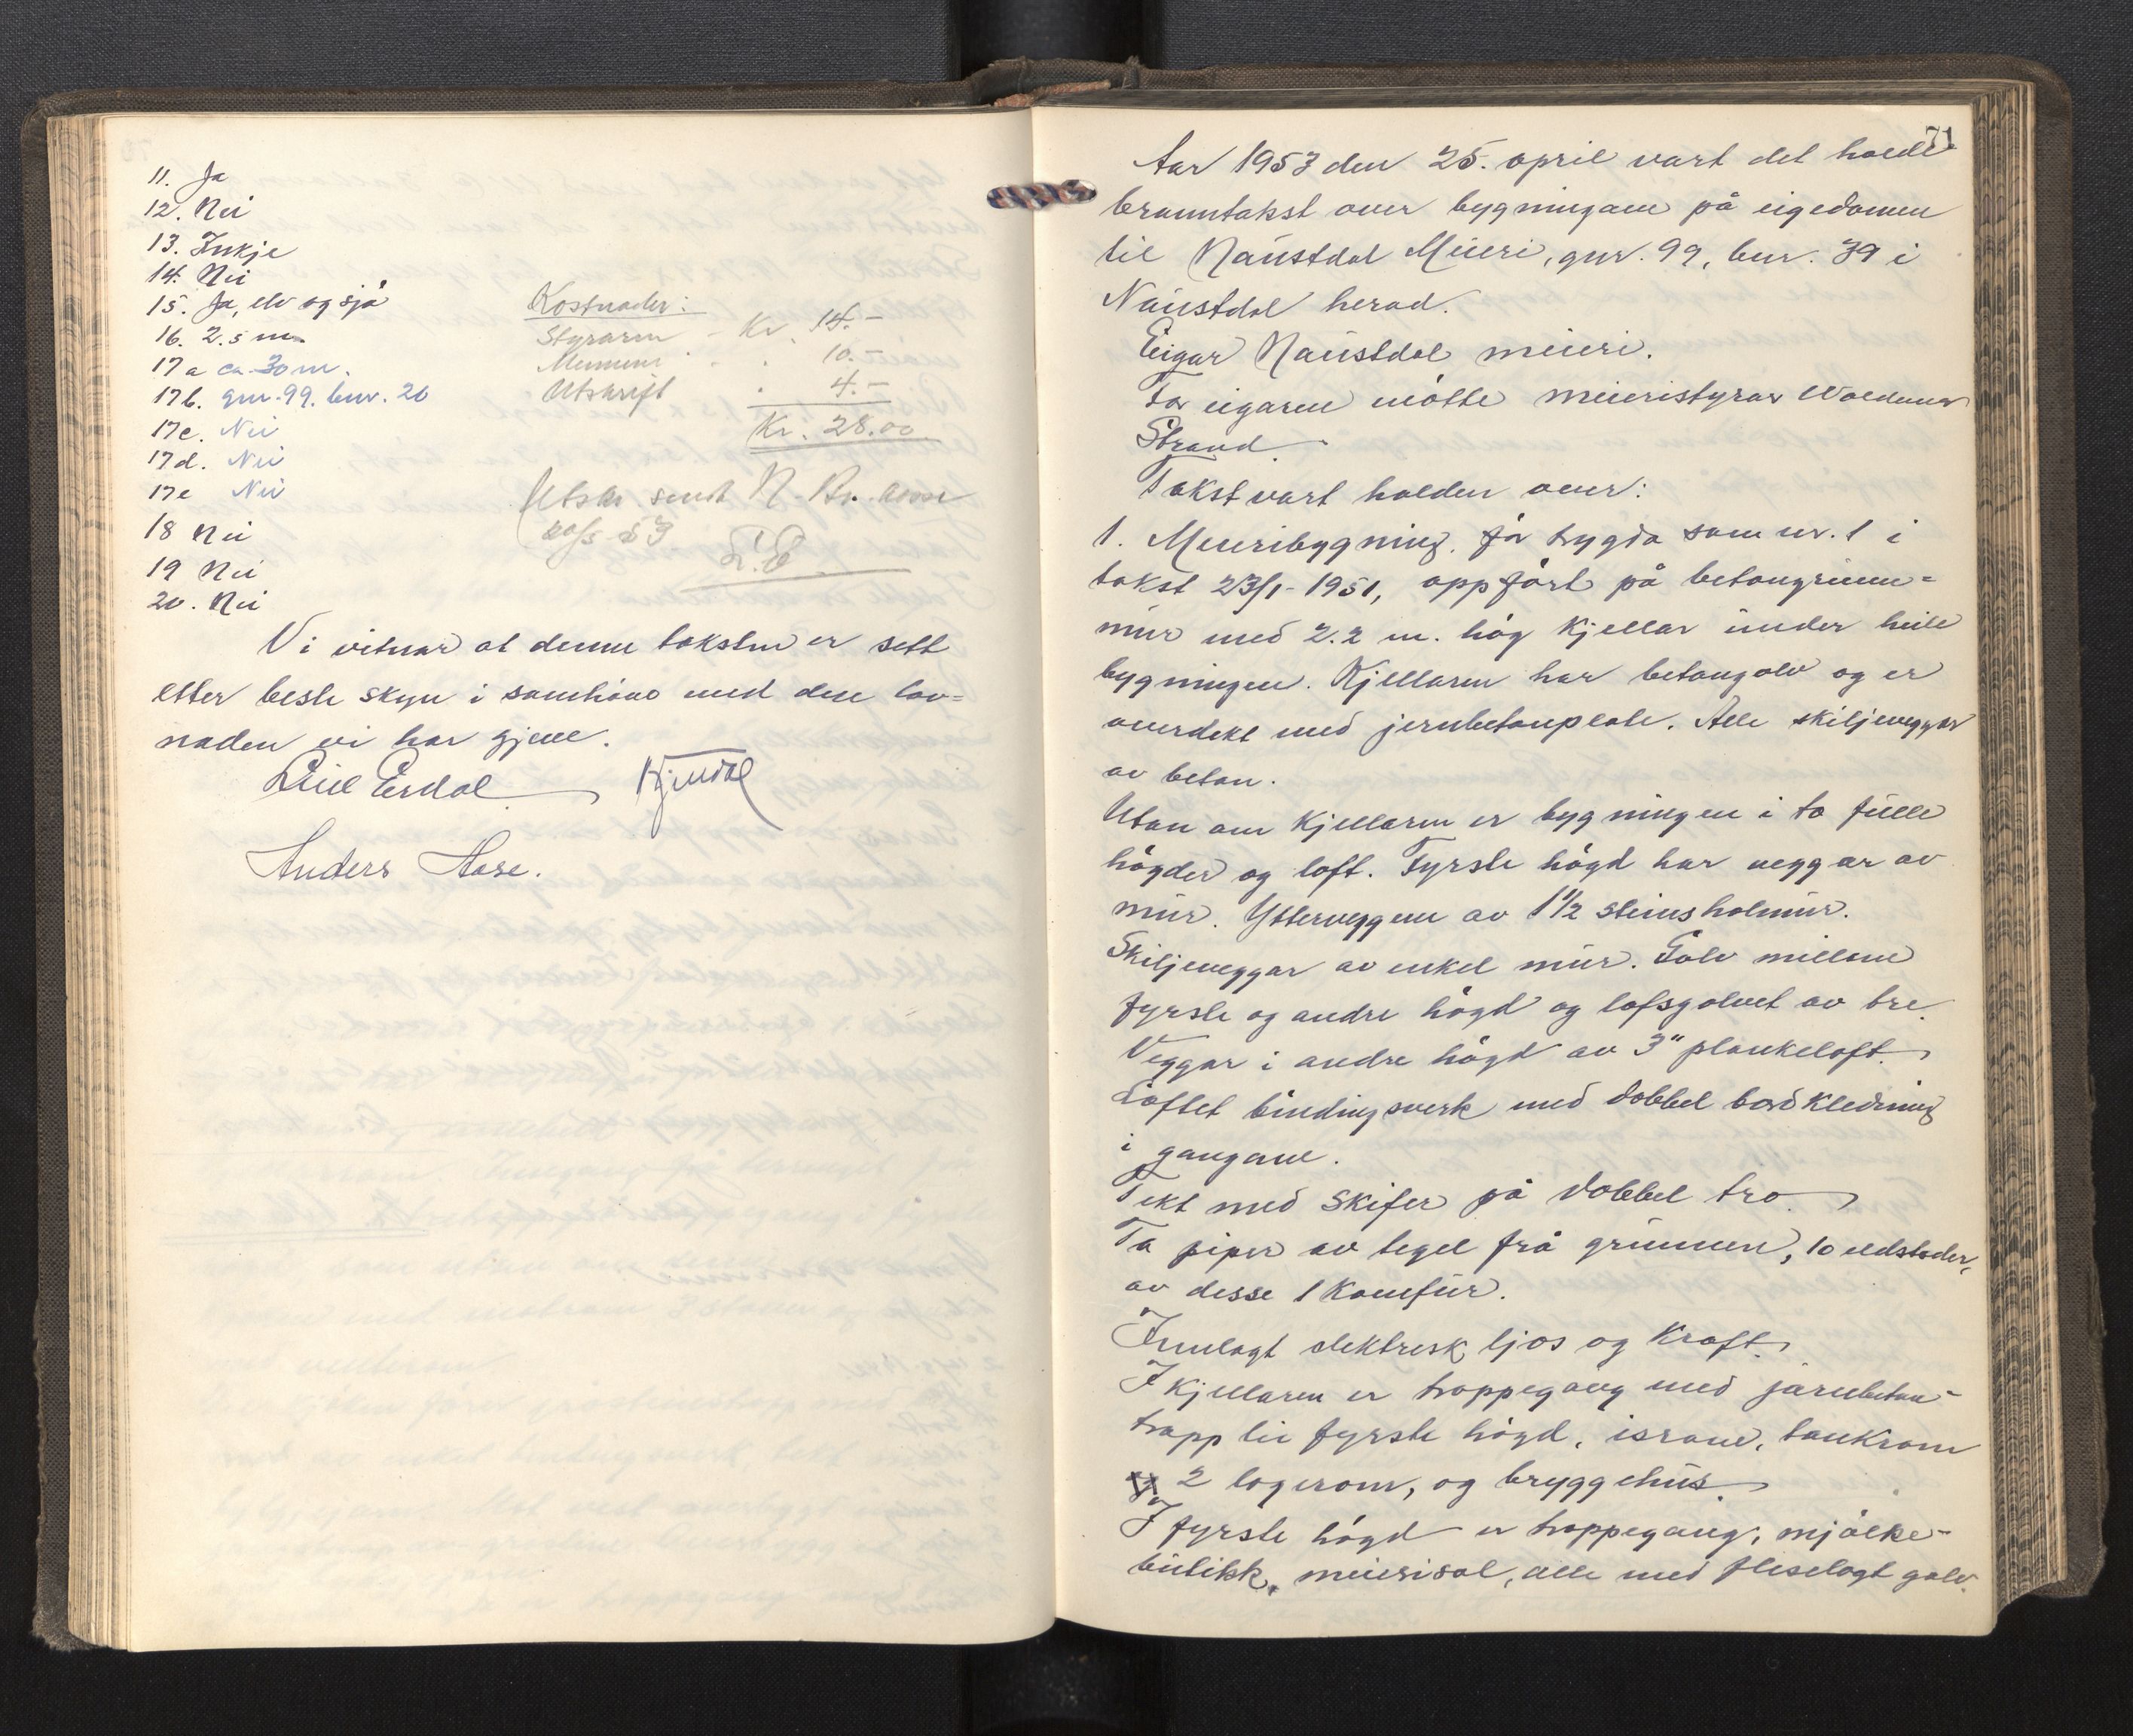 11. Ja
12. Nei
13. Inkje
14. Nei
15. Ja, elv og sjø
16. 2.5 m
17 a ca 30 m.
17b. gnr. 99. bnr. 20
17c. Nei
17d. Nei
17e Nei
18 Nei
19 Nei
20. Nei
Kostnader:
Styraren - Kr. 14.-
10.-
Utskrift " 4.-
Kr. 28.00
Utskr. sendt N. Br. kasse
53
E.E
Vi vitnar at denne taksten er sett
etter beste skyn i samhøve med den lov-
naden vi har gjeve.
Emil Erdal
Anders Aase.
71
Aar 1953 den 25. april vart det halde
branntakst over bygningane på eigedomen
til Naustdal Meieri, gnr. 99, bnr. 39 i
Naustdal herad.
Eigar Naustdal meieri.
For eigaren møtte meieristyrar Valdemar
Strand.
Takst vart halden over:
1. Meieribygning. Før bygda som nr. 1 i
takst 23/1-1951, oppført på betongrunn-
mur med 2.2 m. høg kjellar under heile
bygningen. Kjellaren har betongolv og er
overdekt med jernbetonplate. Alle skiljeveggar
av beton.
Utan om kjellaren er bygningen i to fulle
høgder og loft. Fyrste høgd har veggar av
mur. Ytterveggene av 1½ steins holmur.
Skiljeveggar av enkel mur. Golv millom
fyrste og andre høgd og lofsgolvet av tre.
Veggar i andre høgd av 3" plankeloft.
Loftet bindingsverk med dobbel bordkledning
i gangane.
Tekt med skifer på dobbel tro.
To piper av tegel frå grunnen, 10 eldstader,
av desse 1 komfur.
Innlagt elektrisk ljos og kraft.
I kjellaren er trappegang med jarnbeton-
trapp til fyrste høgd, isrom, tankrom
2 lagerom, og bryggehus.
I fyrste høgd er trappegang, mjølke-
butikk, meierisal, alle med fliselagt golv.